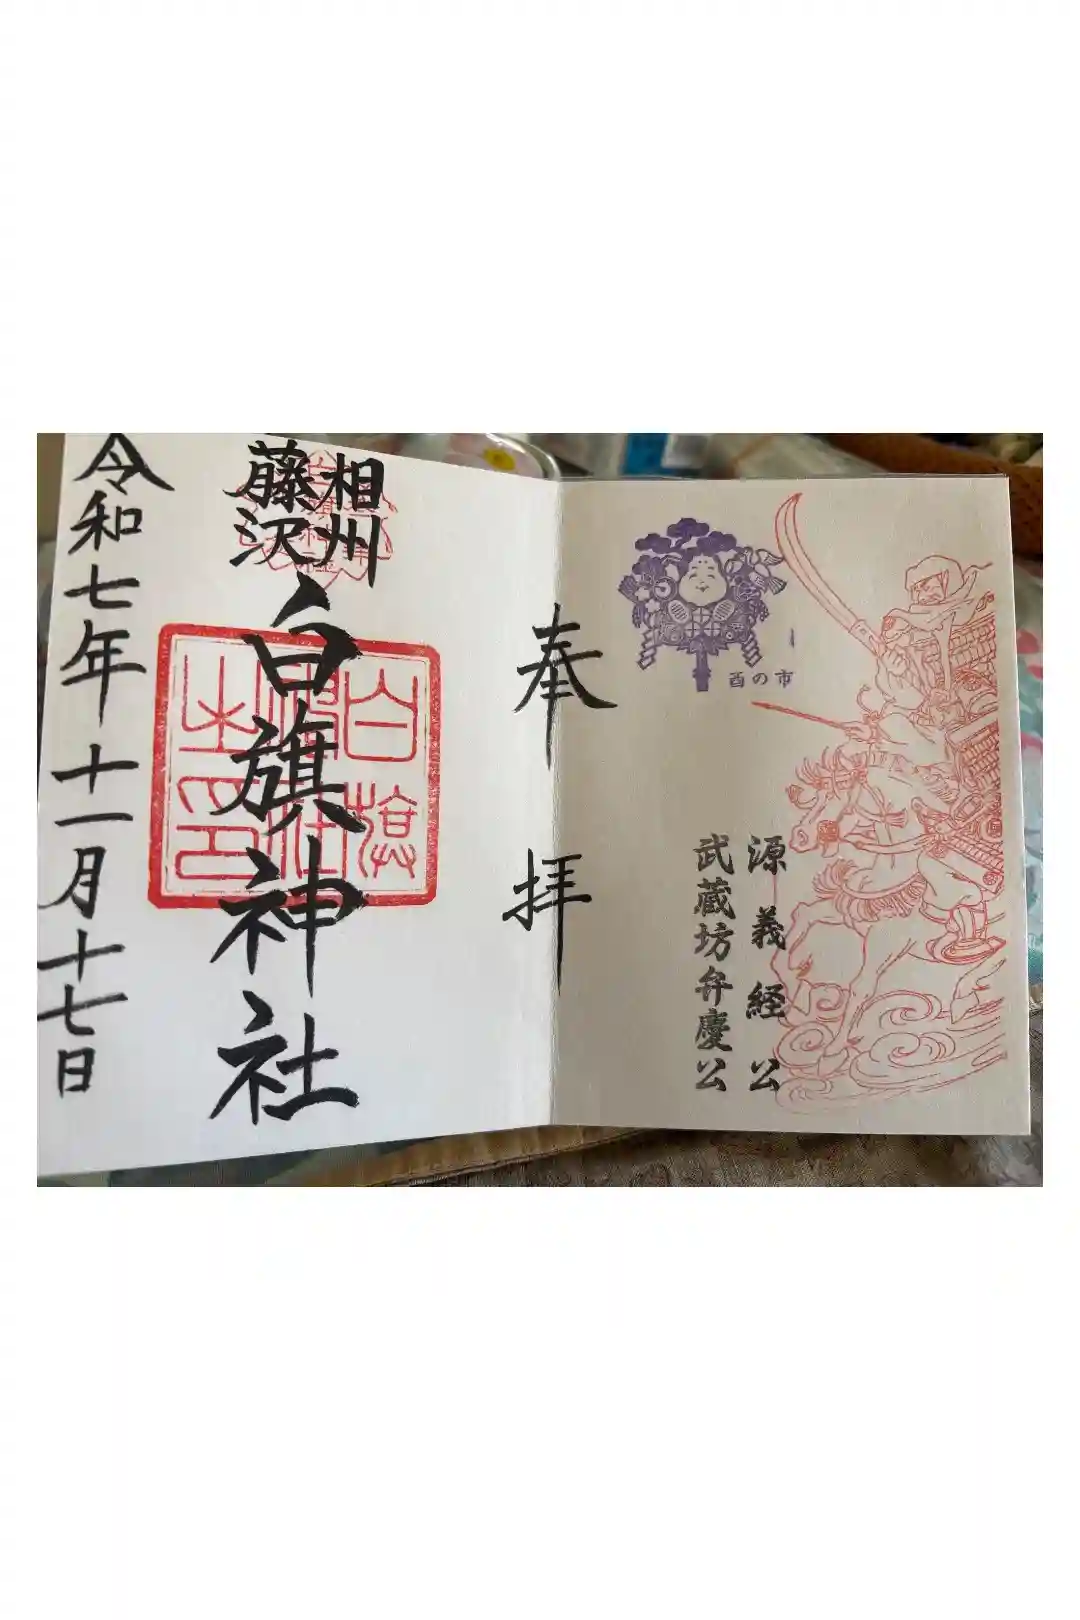 酉の市
源義経公
武蔵坊弁慶公
奉拝
相州
藤沢
白旗神社
令和七年十一月十七日